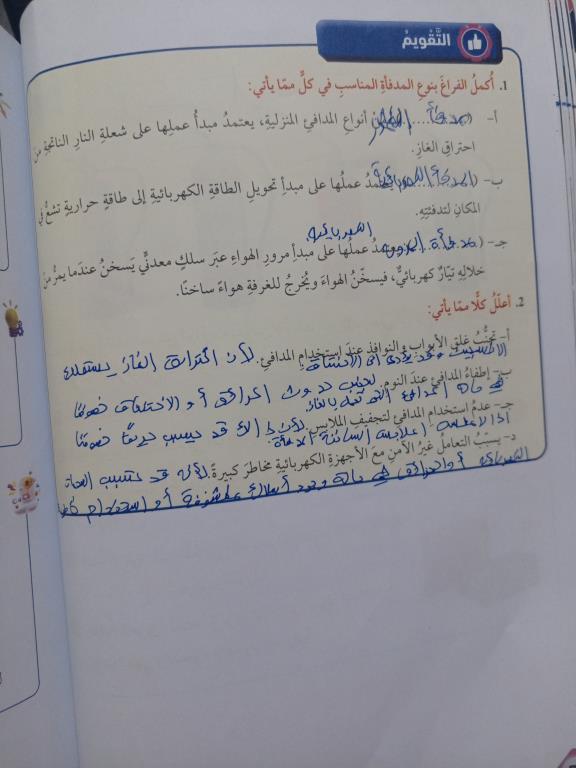 التَّقويمُ
1. أُكملُ الفراغَ بنوعِ المدفأةِ المناسبِ في كلٍّ ممّا يأتي:
أ- (مدفأة .... أنواعِ المدافئِ المنزليةِ، يعتمدُ مبدأُ عملِها على شعلةِ النارِ الناتجةِ من
احتراقِ الغازِ.
ب- (المدفأة الكهربائية يعتمدُ عملُها على مبدأِ تحويلِ الطاقةِ الكهربائيةِ إلى طاقةٍ حراريةٍ تشعُّ في
المكانِ لتدفئتِهِ.
الكهربائية
جـ- (مدفأة يعتمدُ عملُها على مبدأِ مرورِ الهواءِ عبرَ سلكٍ معدنيٍّ يَسخنُ عندَما يمرُّ من
خلالِهِ تيّارٌ كهربائيٌّ، فيسخِّنُ الهواءَ ويُخرجُ للغرفةِ هواءً ساخنًا.
2. أعلّلُ كلًّا ممّا يأتي:
أ- تجنُّبُ غلقِ الأبوابِ والنوافذِ عندَ استخدامِ المدافئِ. لأن احتراق الغاز يستهلك
الأكسجين وقد يؤدي إلى الاختناق
ب- إطفاءُ المدافئِ عندَ النومِ. لتجنب حدوث الحرائق أو الاختناق خصوصًا
في حالة المدافئ التي تعمل بالغاز.
جـ- عدمُ استخدامِ المدافئِ لتجفيفِ الملابسِ. لأن ذلك قد يسبب حريقًا خصوصًا
إذا لامست الملابس المدفأة.
د- يسبّبُ التعاملُ غيرُ الآمنِ معَ الأجهزةِ الكهربائيةِ مخاطرَ كبيرةً. لأنه قد تسبب
الكهربائية أو الحرائق في حالة وجود أسلاك مكشوفة أو استخدام